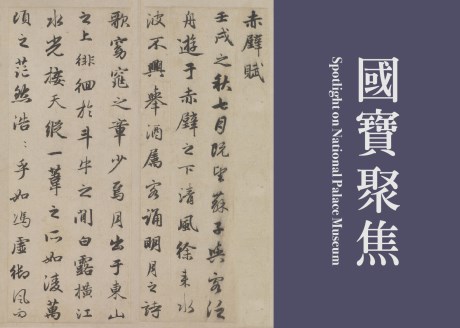 國寶聚焦
Spotlight on National Palace Museum
赤壁賦
壬戌之秋七月既望蘇子與客泛
舟遊于赤壁之下清風徐來水
波不興舉酒屬客誦明月之詩
歌窈窕之章少焉月出于東山
之上徘徊於斗牛之間白露橫江
水光接天縱一葦之所如凌萬
頃之茫然浩〻乎如馮虛御風而